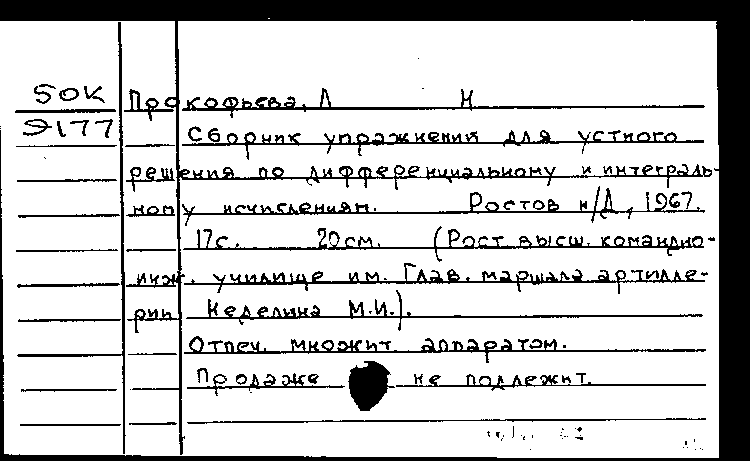 50К Прокофьева, Л Н
9177
Сборник упражнений для устного
решения по дифференциальному и интеграль-
ному исчислениям. Ростов н/Д, 1967.
17с. 20см. (Рост высш. командно-
инж. училище им. Глав. маршала артилле-
рии Неделина М.И.).
Отпеч. множит. аппаратом.
Продаже не подлежит.